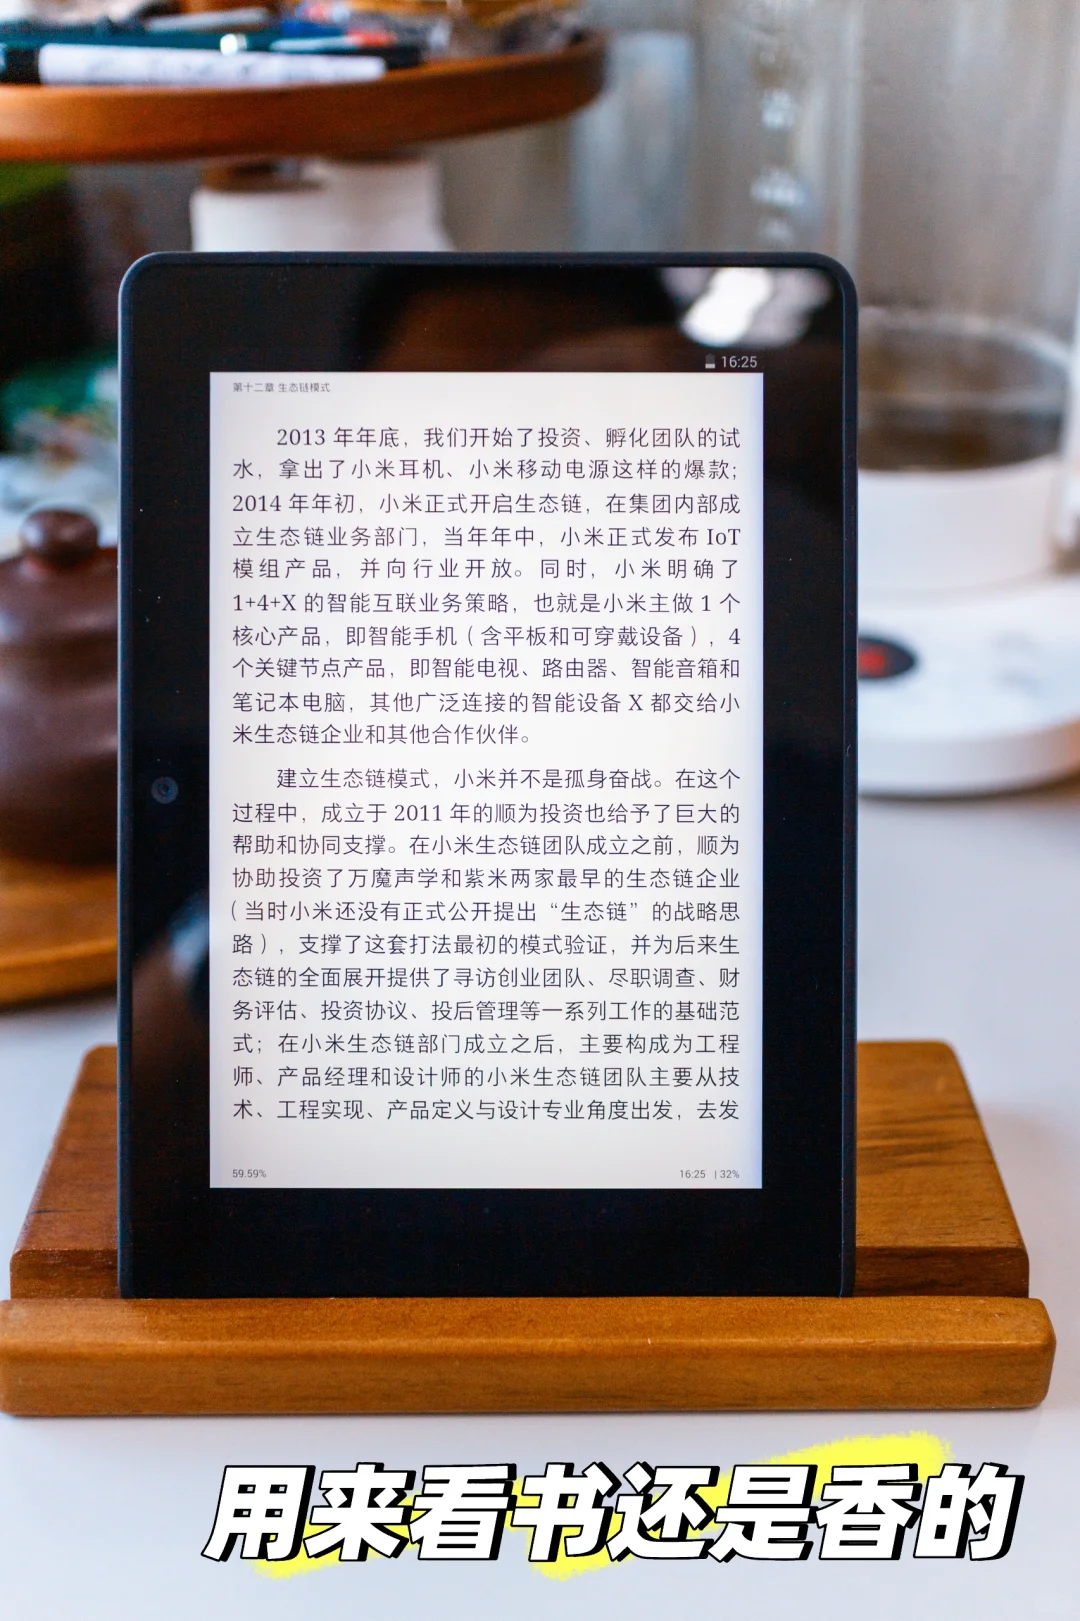 16:25
第十二章 生态链模式
2013 年年底，我们开始了投资、孵化团队的试
水，拿出了小米耳机、小米移动电源这样的爆款；
2014 年年初，小米正式开启生态链，在集团内部成
立生态链业务部门，当年年中，小米正式发布 IoT
模组产品，并向行业开放。同时，小米明确了
1+4+X 的智能互联业务策略，也就是小米主做 1 个
核心产品，即智能手机（含平板和可穿戴设备），4
个关键节点产品，即智能电视、路由器、智能音箱和
笔记本电脑，其他广泛连接的智能设备 X 都交给小
米生态链企业和其他合作伙伴。
建立生态链模式，小米并不是孤身奋战。在这个
过程中，成立于 2011 年的顺为投资也给予了巨大的
帮助和协同支撑。在小米生态链团队成立之前，顺为
协助投资了万魔声学和紫米两家最早的生态链企业
（当时小米还没有正式公开提出“生态链”的战略思
路），支撑了这套打法最初的模式验证，并为后来生
态链的全面展开提供了寻访创业团队、尽职调查、财
务评估、投资协议、投后管理等一系列工作的基础范
式；在小米生态链部门成立之后，主要构成为工程
师、产品经理和设计师的小米生态链团队主要从技
术、工程实现、产品定义与设计专业角度出发，去发
59.59%
16:25 | 32%
用来看书还是香的